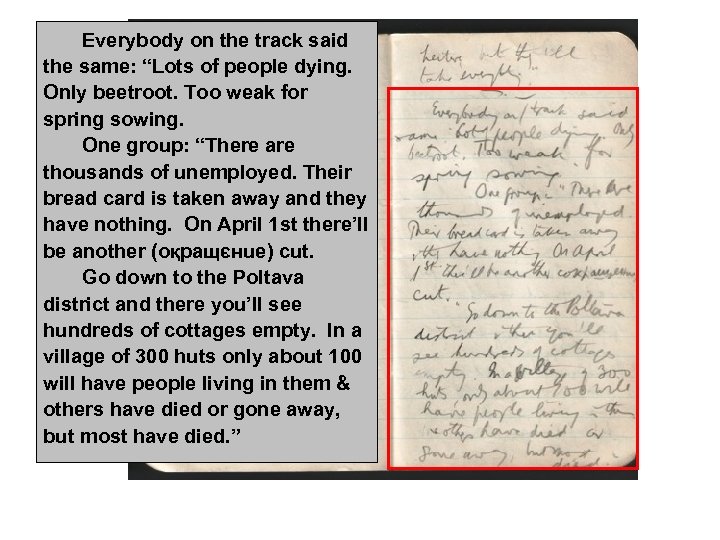 Everybody on the track said
the same: “Lots of people dying.
Only beetroot. Too weak for
spring sowing.
One group: “There are
thousands of unemployed. Their
bread card is taken away and they
have nothing. On April 1st there’ll
be another (оқращєнuе) cut.
Go down to the Poltava
district and there you’ll see
hundreds of cottages empty. In a
village of 300 huts only about 100
will have people living in them &
others have died or gone away,
but most have died.”
but they'll
take everything."
Everybody on track said
same: Lots people dying. Only
beetroot. Too weak for
spring sowing.
One group: "There are
thousands of unemployed.
Their bread card is taken away
they have nothing. On April
1st there'll be another
cut.
"Go down to the Poltava
district & there you'll
see hundreds of cottages
empty. In a village of 300
huts only about 100 will
have people living in them
& others have died or
gone away, but most
died."